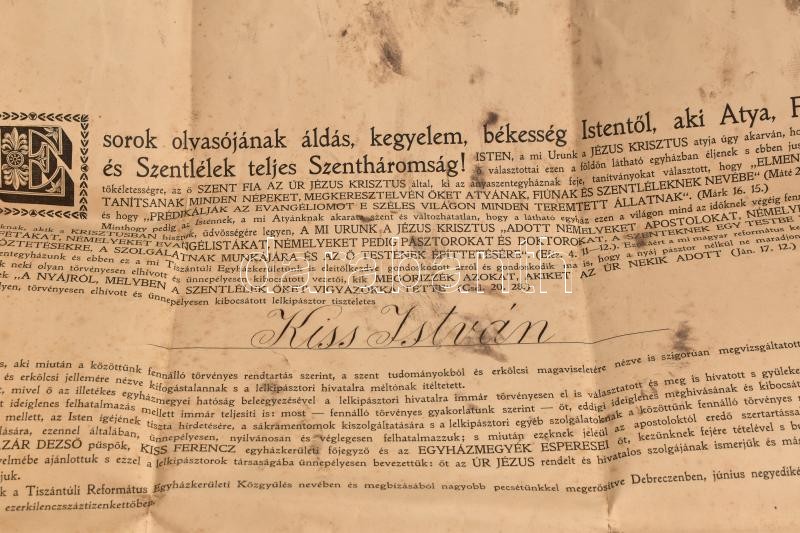 E sorok olvasójának áldás, kegyelem, békesség Istentől, aki Atya, F
és Szentlélek teljes Szentháromság! ISTEN, a mi Urunk a JÉZUS KRISZTUS atyja úgy akarván, ho
választottai ezen a földön látható egyházban éljenek s ebben jus
tökéletességre, az ő SZENT FIA AZ ÚR JÉZUS KRISZTUS által, ki az anyaszentegyháznak feje, tanítványokat választott, hogy „ELMEN
TANÍTSANAK MINDEN NÉPEKET, MEGKERESZTELVÉN ŐKET ATYÁNAK, FIÚNAK ÉS SZENTLÉLEKNEK NEVÉBE" (Máté 2
és hogy „PRÉDIKÁLJÁK AZ EVANGÉLIOMOT E SZÉLES VILÁGON MINDEN TEREMTETT ÁLLATNAK". (Márk 16. 15.)
Minthogy pedig az Istennek, a mi Atyánknak akarata szent és változhatatlan, hogy a látható egyház ezen a világon mind az időknek végéig fenn
knak, akik a KRISZTUSBAN hisznek, üdvösségére legyen, A MI URUNK A JÉZUS KRISZTUS „ADOTT NÉMELYEKET APOSTOLOKAT, NÉMELYE
FÉTÁKAT, NÉMELYEKET EVANGÉLISTÁKAT, NÉMELYEKET PEDIG PÁSZTOROKAT ÉS DOKTOROKAT, A SZENTEKNEK EGY TESTBE
KÖZTETÉSEKRE, A SZOLGÁLATNAK MUNKÁJÁRA ÉS AZ Ő TESTÉNEK ÉPÍTTETÉSÉRE" (Efez. 4. 11—12.). Ezekért a mi magyar református ke
entegyházunk és ebben ez a mi Tiszántúli Egyházkerületünk is eleitől kezdve gondoskodott arról és gondoskodik ma is, hogy a nyáj pásztor nélkül ne maradjon
k neki olyan törvényesen elhívott és ünnepélyesen kibocsátott vezetői, kik „MEGŐRIZZÉK AZOKAT, AKIKET AZ ÚR NEKIK ADOTT (Ján. 17. 12.)
ek „A NYÁJRÓL, MELYBEN A SZENTLÉLEK ŐKET VIGYÁZÓKKÁ TETTE" (Csel. 20. 28.).
lyen, törvényesen elhívott és ünnepélyesen kibocsátott lelkipásztor tiszteletes
Kiss István
s, aki miután a közöttünk fennálló törvényes rendtartás szerint, a szent tudományokból és erkölcsi magaviseletére nézve is szigorúan megvizsgáltatott
és erkölcsi jellemére nézve kifogástalannak s a lelkipásztori hivatalra méltónak ítéltetett.
t, mivel ő az illetékes egyházmegyei hatóság beleegyezésével a lelkipásztori hivatalra immár törvényesen el is választatott és meg is hivatott s gyüleke
it ideiglenes felhatalmazás mellett immár teljesíti is: most — fennálló törvényes gyakorlatunk szerint — őt, eddigi ideiglenes meghívásának és kibocsát
mellett, az Isten igéjének tiszta hirdetésére, a sákramentomok kiszolgáltatására s a lelkipásztori egyéb szolgálatoknak a közöttünk fennálló törvényes
dására, ezennel általában, ünnepélyesen, nyilvánosan és véglegesen felhatalmazzuk; s miután ezeknek jeléül az apostoloktól eredő szertartással
ZÁR DEZSŐ püspök, KISS FERENCZ egyházkerületi főjegyző és az EGYHÁZMEGYÉK ESPERESEI őt, kezünknek fejére tételével s bu
yelmébe ajánlottuk s ezzel a lelkipásztorok társaságába ünnepélyesen bevezettük: őt az ÚR JÉZUS rendelt és hivatalos szolgájának ismerjük és má
juk.
k a Tiszántúli Református Egyházkerületi Közgyülés nevében és megbízásából nagyobb pecsétünkkel megerősítve Debreczenben, június negyediké
ezerkilenczszáztizenkettőben
darabanth